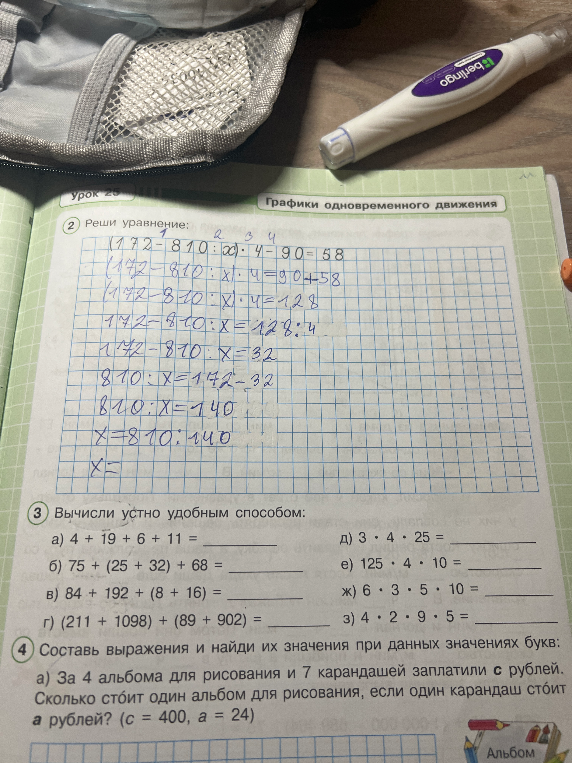 berlingo
Урок 25
Графики одновременного движения
2 Реши уравнение:
1 2 3 4
(172 - 810 : x) · 4 - 90 = 58
(172 - 810 : x) · 4 = 90 + 58
(172 - 810 : x) · 4 = 128
172 - 810 : x = 128 : 4
172 - 810 : x = 32
810 : x = 172 - 32
810 : x = 140
x = 810 : 140
x =
3 Вычисли устно удобным способом:
а) 4 + 19 + 6 + 11 = ______
б) 75 + (25 + 32) + 68 = ______
в) 84 + 192 + (8 + 16) = ______
г) (211 + 1098) + (89 + 902) = ______
д) 3 · 4 · 25 = ______
е) 125 · 4 · 10 = ______
ж) 6 · 3 · 5 · 10 = ______
з) 4 · 2 · 9 · 5 = ______
4 Составь выражения и найди их значения при данных значениях букв:
а) За 4 альбома для рисования и 7 карандашей заплатили с рублей.
Сколько стóит один альбом для рисования, если один карандаш стóит
а рублей? (с = 400, а = 24)
Альбом